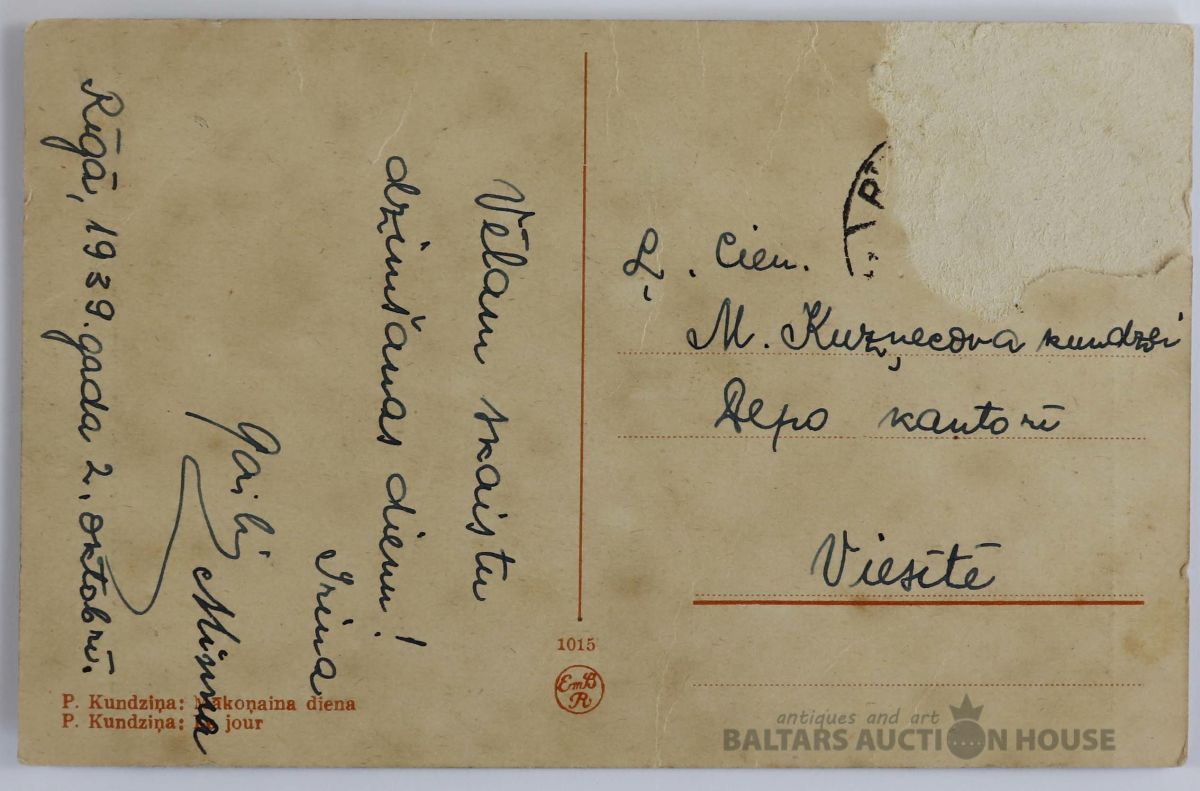 Vēlam skaistu
dzimšanas dienu!
Irina
Minna
Rīgā, 1939. gada 2. oktobrī.
P. Kundziņa: Mākoņaina diena
P. Kundziņa: jour
1015
EmB
R
Cien.
M. Kuzņecova kundzei
Depo kantorī
Viesītē
antiques and art
BALTARS AUCTION HOUSE